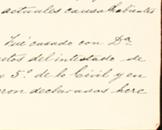 actuales causahabientes
Fué casado con Dª
autos del intestado de
o 5.º de lo Civil y en
ron declarados here